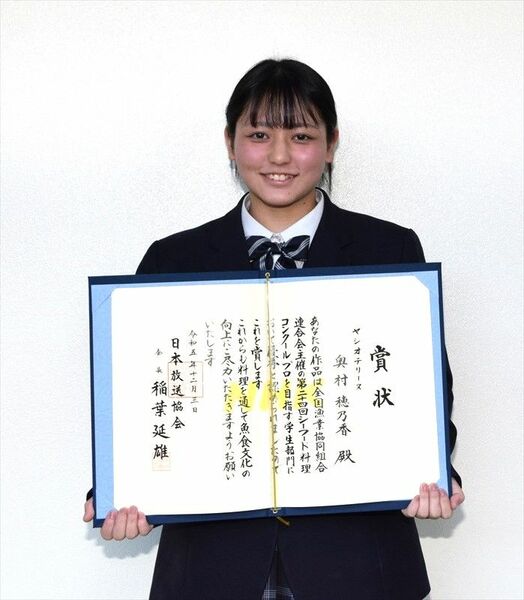 賞状
ヤシオテリース
奥村 穂乃香 殿
あなたの作品は全国漁業協同組合
連合会主催の第二十四回シーフード料理
コンクール プロを目指す学生部門に
これを賞します
これからも料理を通して魚食文化の
向上にご尽力いただきますようお願い
いたします
令和五年十二月三日
日本放送協会
会長 稲葉延雄